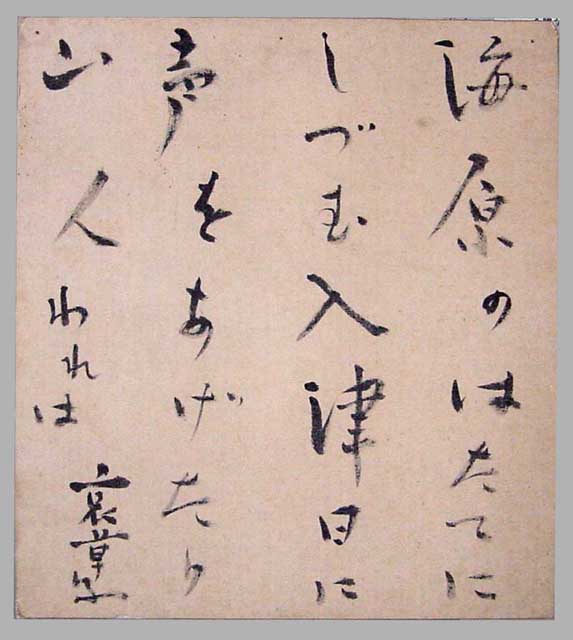 海原のはたてに
しづむ入津日に
声をあげたり
山人われは
哀草果